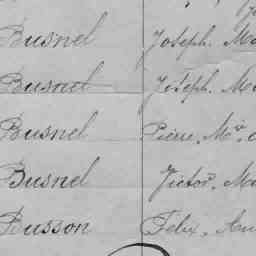 Busnel Joseph. Ma
Busnel Joseph. Ma
Busnel Pierre. Mie
Busnel Victor. Ma
Busson Félix. Au